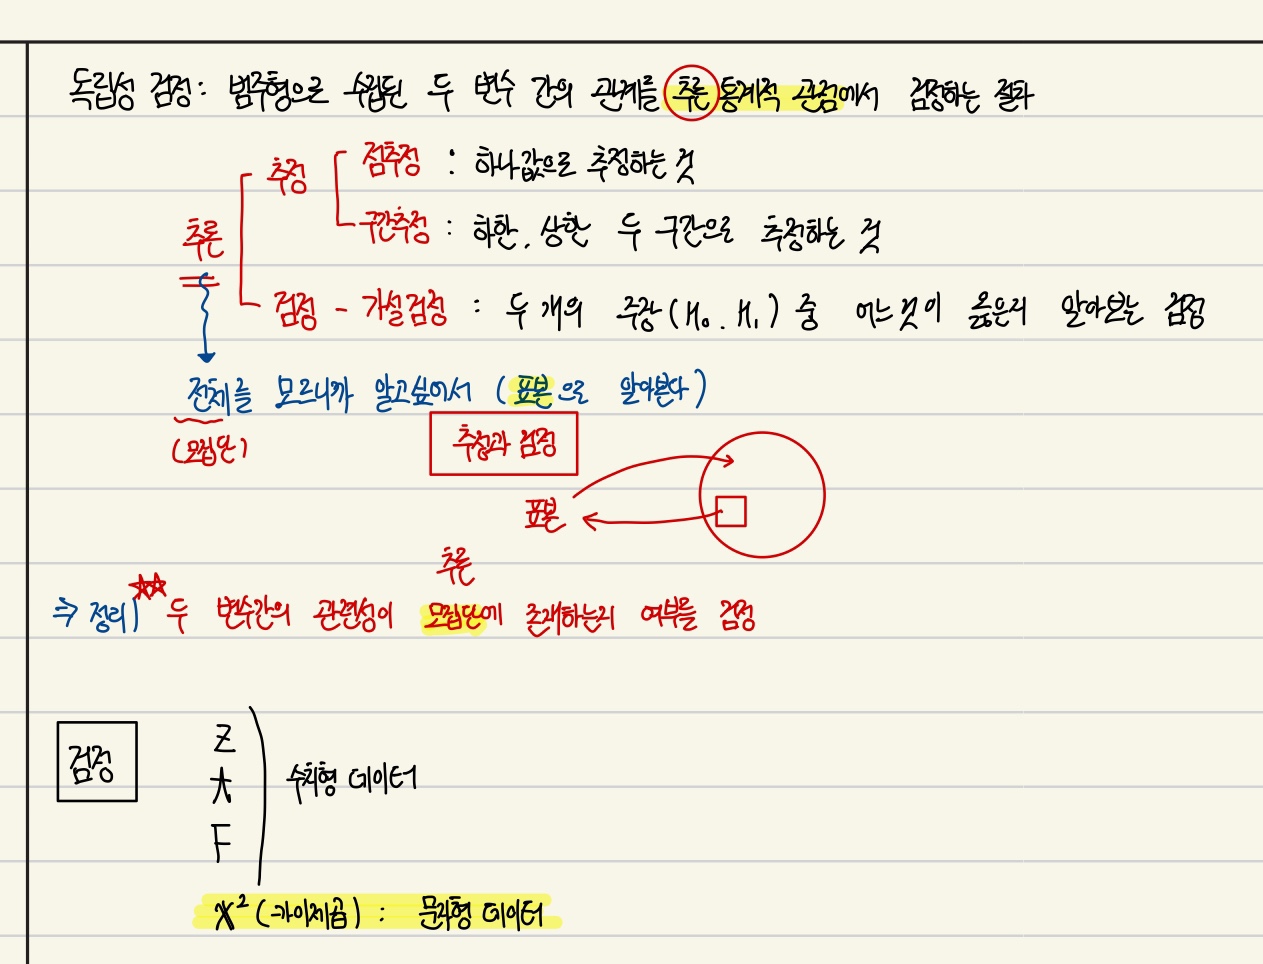 독립성 검정 : 범주형으로 수집된 두 변수 간의 관계를 추론 통계적 관점에서 검정하는 절차
추정
점추정 : 하나 값으로 추정하는 것
구간추정 : 하한, 상한 두 구간으로 추정하는 것
추론
검정 - 가설검정 : 두 개의 주장 (H₀, H₁) 중 어느것이 옳은지 알아보는 검정
전체를 모르니까 알고싶어서 (표본으로 알아본다)
(모집단)
추정과 검정
표본
추론
⇒ 정리) ☆☆ 두 변수간의 관련성이 모집단에 존재하는지 여부를 검정
검정
Z
t
F
수치형 데이터
χ² (카이제곱) : 문자형 데이터